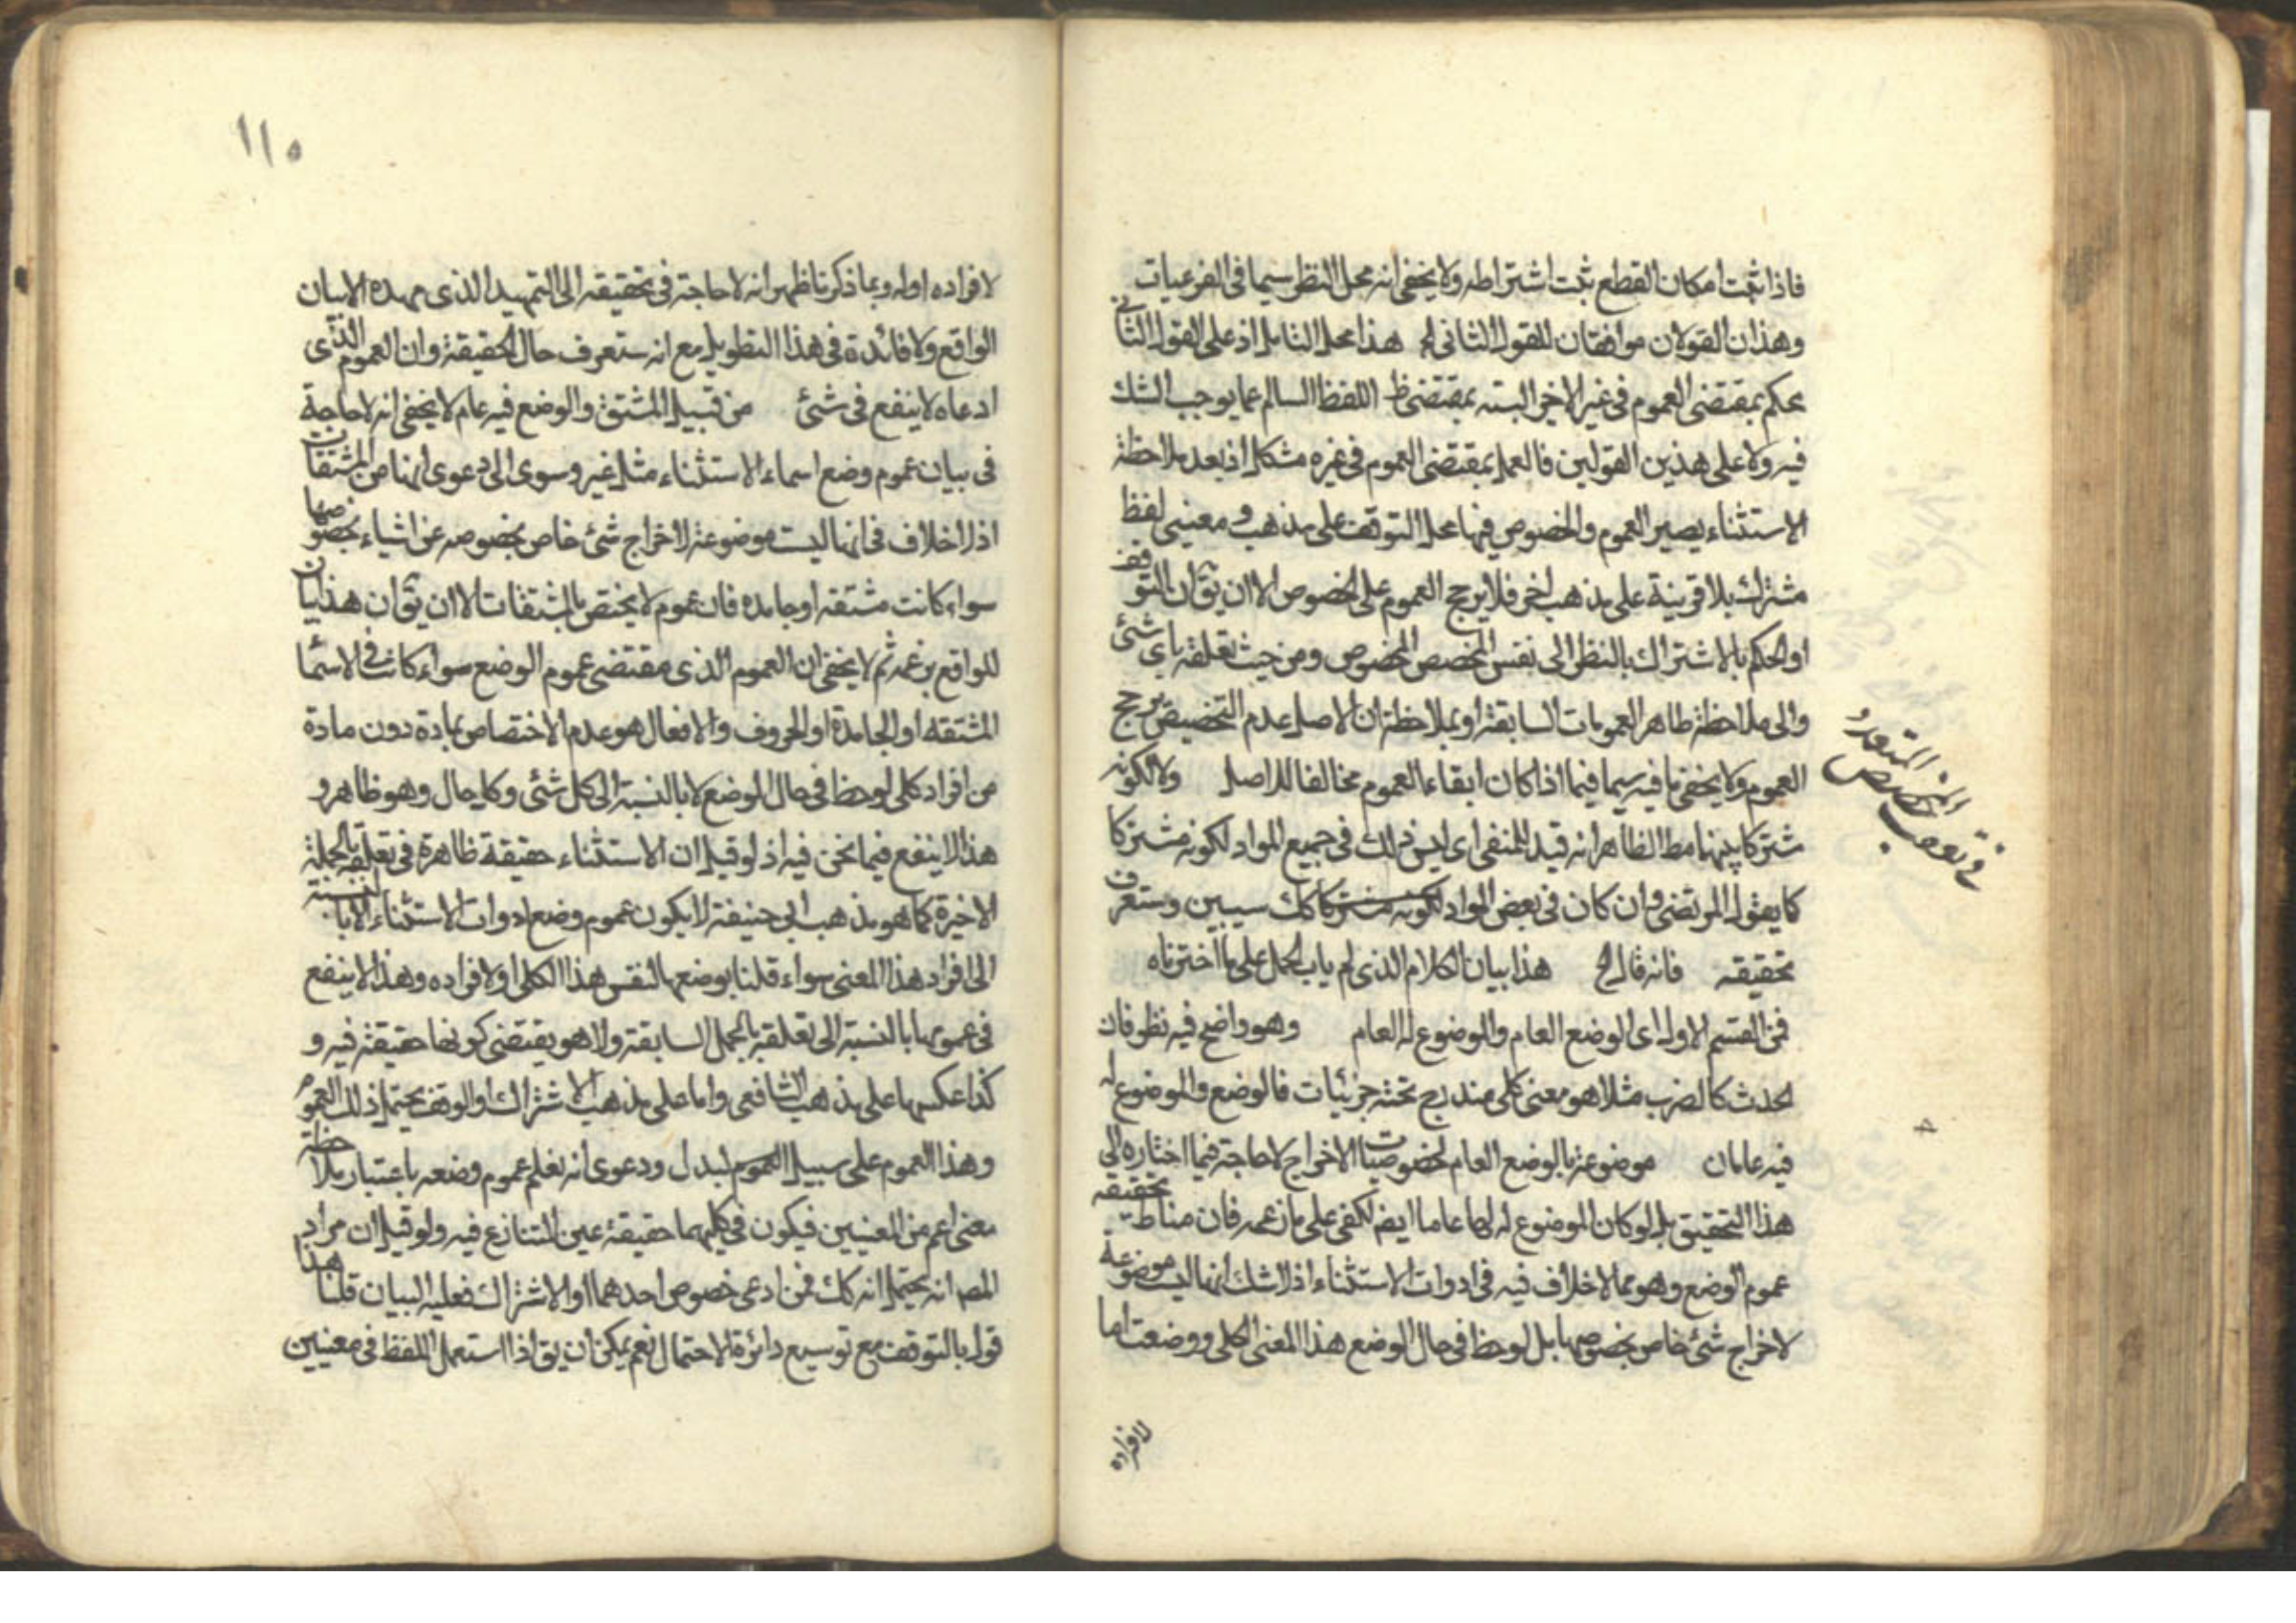 فاذا ثبت امكان القطع ثبت اشتراطه ولا يخفى انه محل النظر سيما فى الفرعيات
وهذان القولان موافقان للقول الثانى الخ هذا محل التامل اذ على القول الثانى
يحكم بمقتضى العموم فى غير الاخير البته بمقتضى ظ اللفظ السالم عما يوجب الشك
فيه ولا على هذين القولين فالعمل بمقتضى العموم فى غيره مشكل اذ بعد ملاحظة
الاستثناء يصير العموم والخصوص فيها محل التوقف على مذهب ومعنيى لفظ
مشترك بلا قرينة على مذهب اخر فلا يرجح العموم على الخصوص الا ان يق ان التوقف
او الحكم بالاشتراك بالنظر الى نفس المخصص المخصوص ومن حيث تعلقه باى شئ
والى ملاحظة ظاهر العمومات السابقة او بملاحظة ان الاصل عدم التخصيص يرجح
العموم ولا يخفى ما فيه سيما فيما اذا كان ابقاء العموم مخالفا للاصل ولا لكونه
مشتركا بينهما مط الظاهر انه قيد للمنفى اى ليس ذلك فى جميع المواد لكونه مشتركا
كما يقول المرتضى وان كان فى بعض المواد لكونه مشتركا كك سيبين وستعرف
تحقيقه فانه قال الخ هذا بيان الكلام الذى لم ياب الحمل على ما اخترناه
فمن القسم الاول اى الوضع العام والموضوع له العام وهو واضح فيه نظر فان
الحدث كالضرب مثلا هو معنى كلى مندرج تحته جزئيات فالوضع والموضوع له
فيه عامان موضوعة بالوضع العام لخصوصيات الاخراج لا حاجة فيما اختاره الى
هذا التحقيق بل لو كان الموضوع له لها عاما ايضا لكفى على ما زعمه فان مناط تحقيقه
عموم الوضع وهو مما لا خلاف فيه فى ادوات الاستثناء اذ لا شك انها ليست موضوعة
لاخراج شئ خاص بخصوصها بل لوحظ فى حال الوضع هذا المعنى الكلى ووضعت اما
لافراده
فى تعقب المخصص المتعدد
١١٥
لافراده او له وبما ذكرنا ظهر انه لا حاجة فى تحقيقه الى التمهيد الذى مهده الا بيان
الواقع ولا فائدة فى هذا التطويل مع انه ستعرف حال الحقيقة وان العموم الذى
ادعاه لا ينفع فى شئ من قبيل المشتق والوضع فيه عام لا يخفى انه لا حاجة
فى بيان عموم وضع اسماء الاستثناء مثل غير وسوى الى دعوى انها من المشتقات
اذ لا خلاف فى انها ليست موضوعة لاخراج شئ خاص بخصوصه عن اشياء بخصوصها
سواء كانت مشتقه او جامده فان عموم لا يختص بالمشتقات الا ان يق ان هذا بيان
للواقع بزعمه ثم لا يخفى ان العموم الذى مقتضى عموم الوضع سواء كانت فى الاسماء
المشتقه او الجامدة او الحروف والافعال هو عدم الاختصاص بمادة دون مادة
من افراد كلى لوحظ فى حال الوضع لا بالنسبة الى كل شئ وكل حال وهو ظاهر و
هذا لا ينفع فيما نحن فيه اذ لو قيل ان الاستثناء حقيقة ظاهرة فى تعلقه بالجملة
الاخيرة كما هو مذهب ابى حنيفة لا يكون عموم وضع ادوات الاستثناء الا بالنسبة
الى افراد هذا المعنى سواء قلنا بوضعها لنفس هذا الكلى او لافراده وهذا لا ينفع
فى عمومها بالنسبة الى تعلقه بالجمل السابقة ولا هو يقتضى كونها حقيقة فيه و
كذا عكسها على مذهب الشافعى واما على مذهب الاشتراك او الوقف يحتمل ذلك العموم
وهذا العموم على سبيل العموم البدل ودعوى انه نعلم عموم وضعه باعتبار ملاحظة
معنى اعم من المعنيين فيكون فى كليهما حقيقة عين المتنازع فيه ولو قيل ان مراد
المصـ انه يحتمل انه كك فمن ادعى خصوص احدهما او الاشتراك فعليه البيان قلنا هذا
قول بالتوقف مع توسيع دائرة الاحتمال نعم يمكن ان يق اذا استعمل اللفظ فى معنيين